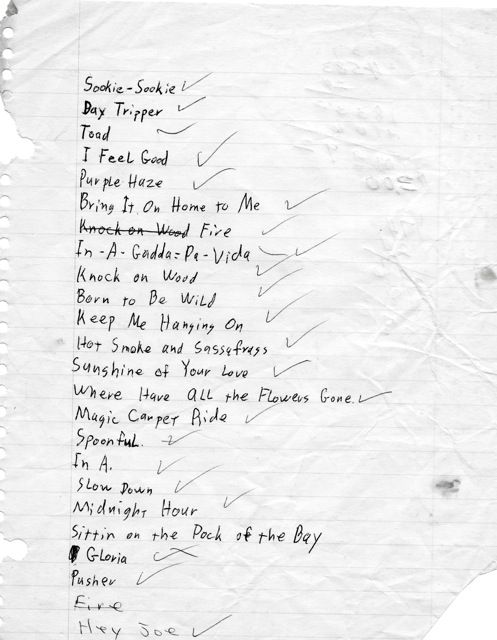 Sookie-Sookie ✓
Day Tripper ✓
Toad ✓
I Feel Good ✓
Purple Haze ✓
Bring It On Home to Me ✓
Knock on Wood Fire ✓
In-A-Gadda-Da-Vida ✓
Knock on Wood ✓
Born to Be Wild ✓
Keep Me Hanging On ✓
Hot Smoke and Sassafrass ✓
Sunshine of Your Love ✓
Where Have All the Flowers Gone. ✓
Magic Carpet Ride ✓
Spoonful. ✓
In A. ✓
Slow Down ✓
Midnight Hour ✓
Sittin on the Dock of the Bay
Gloria ✓
Pusher ✓
Fire
Hey Joe ✓